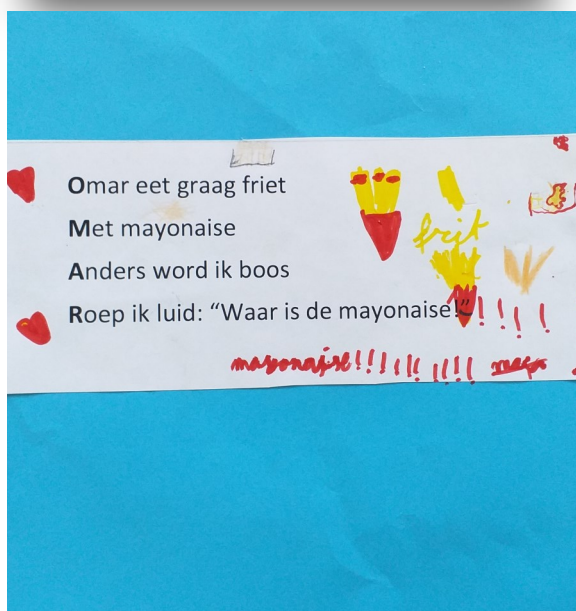 Omar eet graag friet
Met mayonaise
frit
Anders word ik boos
Roep ik luid: “Waar is de mayonaise!”!!!!
mayonaise!!!!!!!!!!